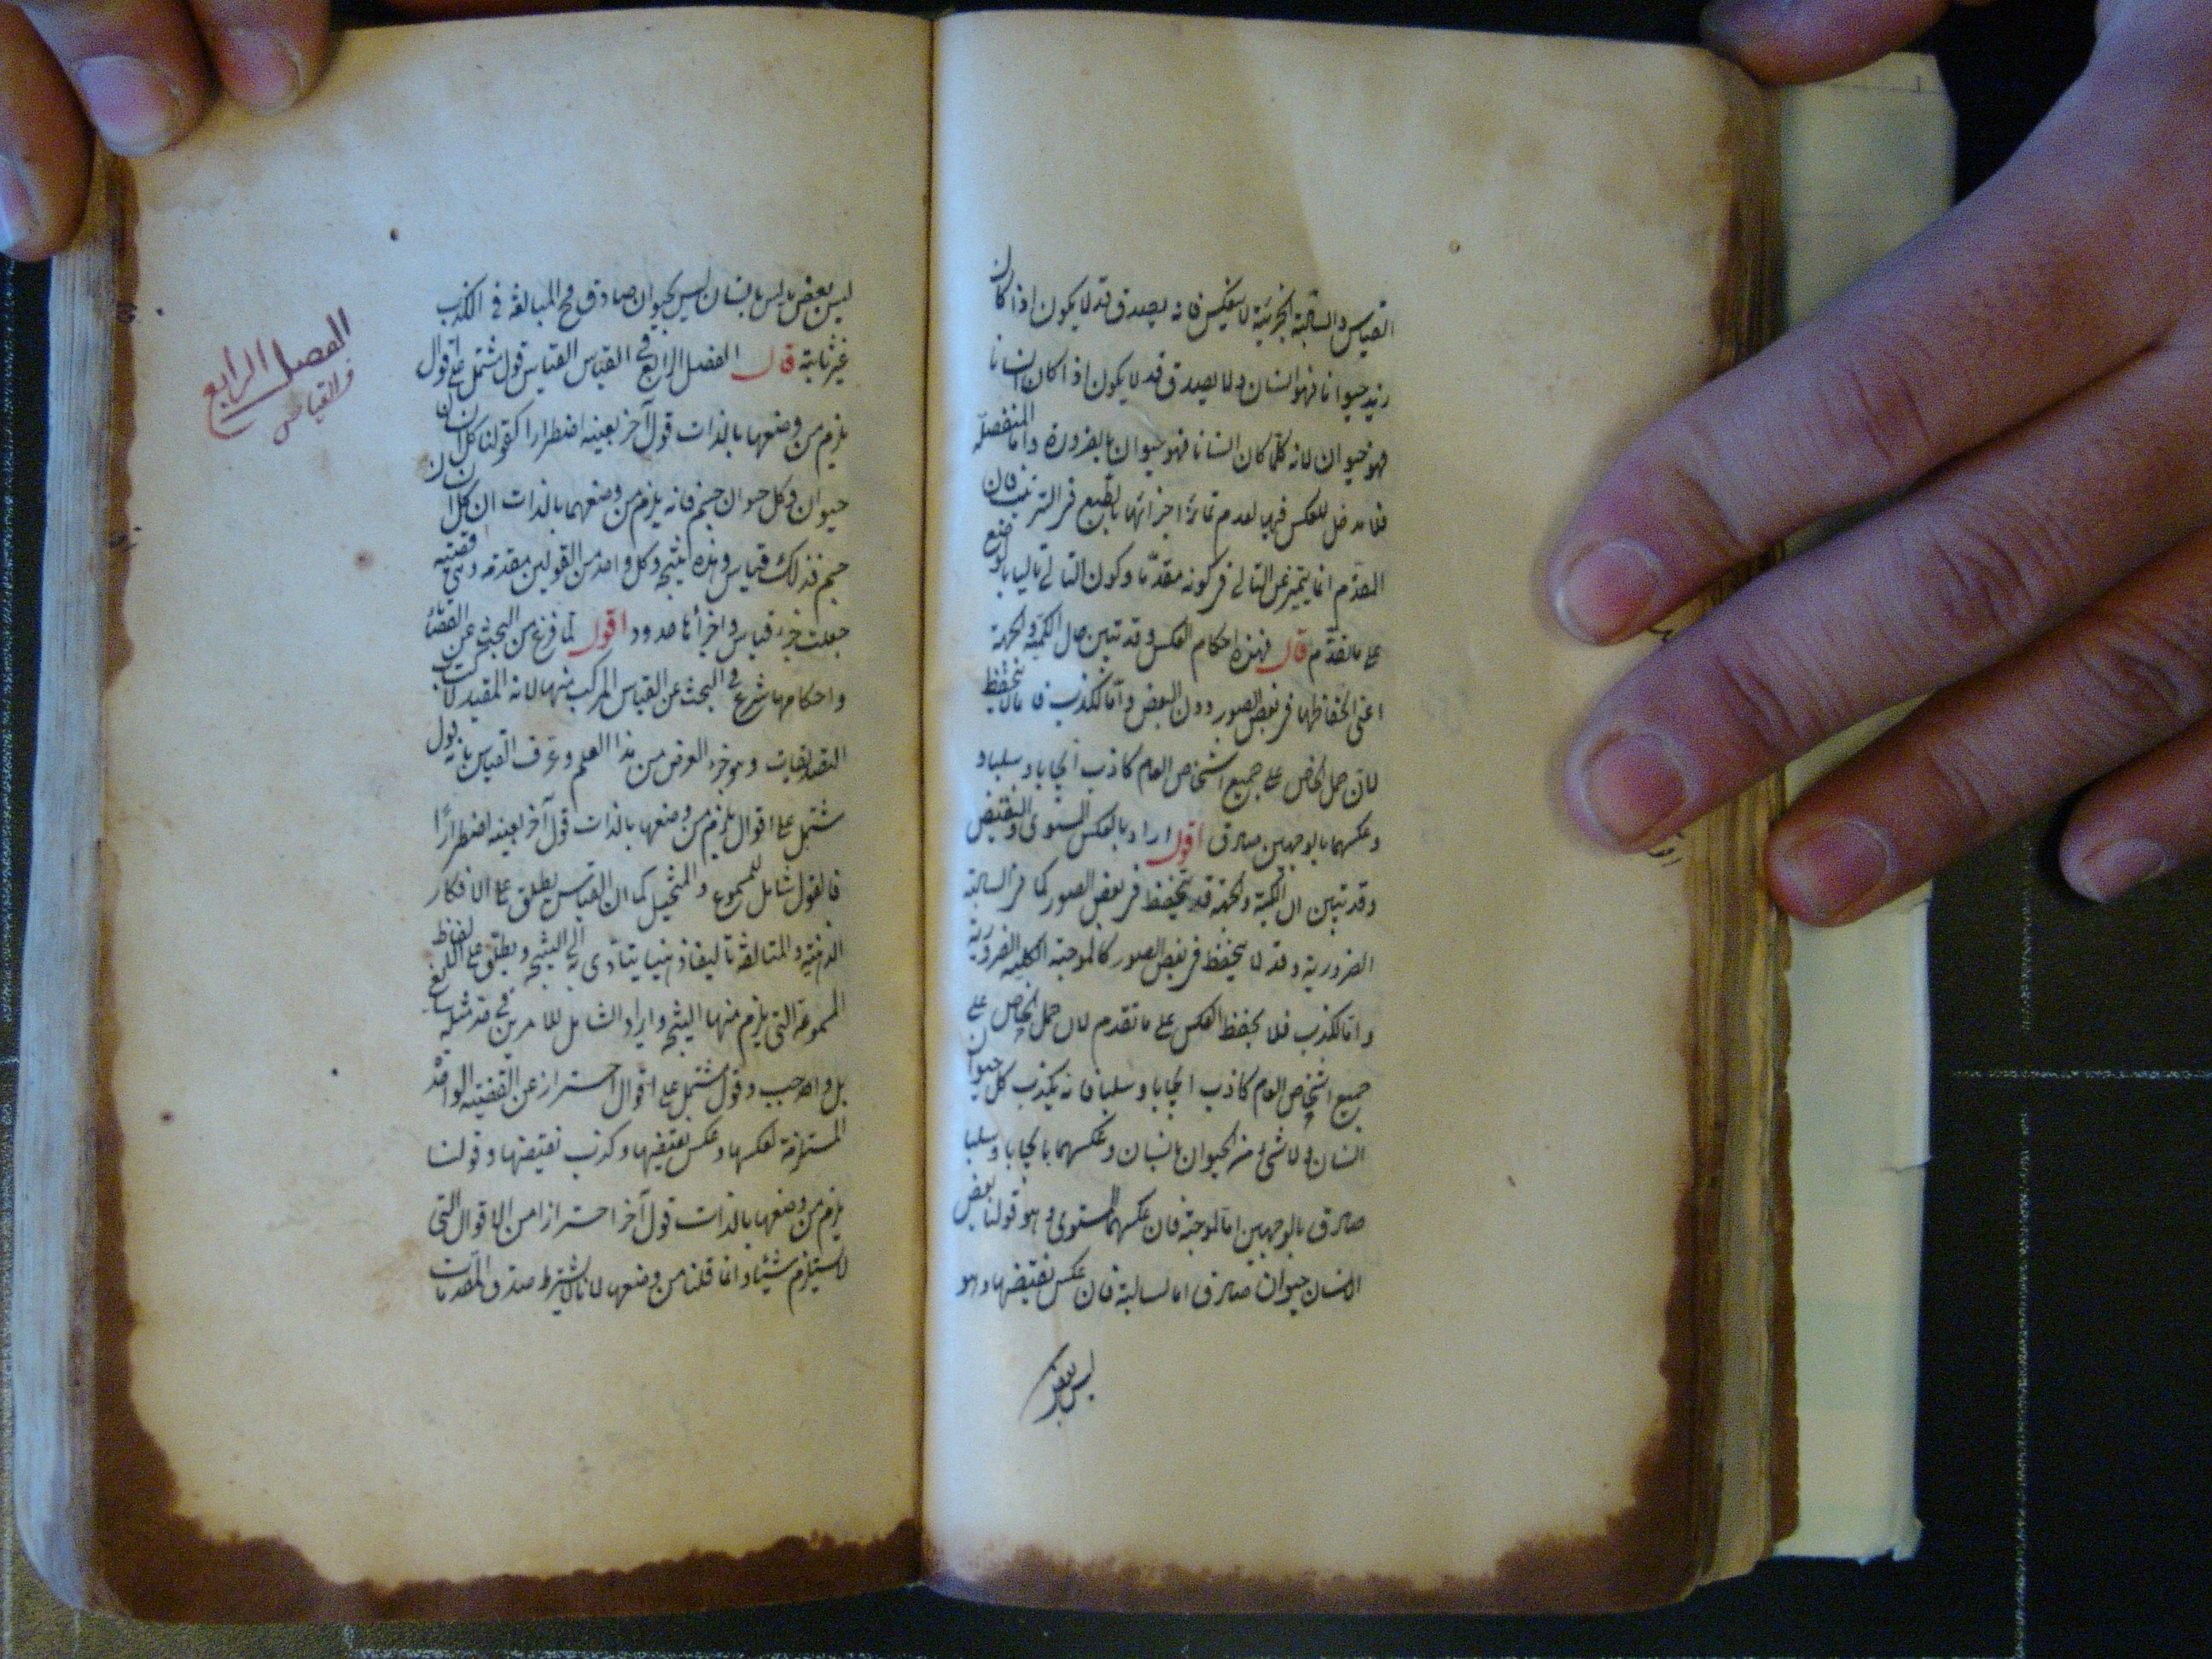 القياس والسالبة الجزئية لا ينعكس فانه يصدق قد لا يكون اذا كان
زيد حيوانا فهو انسان ولا يصدق قد لا يكون اذا كان انسانا
فهو حيوان لانه كلما كان انسانا فهو حيوان بالضرورة واما المنفصلة
فلا مدخل للعكس فيها لعدم تمايز اجزائها بالطبع في الترتيب فان
المقدم انما يتميز عن التالي في كونه مقدما وكون التالي تاليا بالوضع
على ما تقدم قال فهذه احكام العكس وقد تبين حال الكمية والجهة
اعني انحفاظهما في بعض الصور دون البعض واما الكذب فلا ينحفظ
لان حمل الخاص على جميع اشخاص العام كاذب ايجابا وسلبا و
وعكسهما بالوجهين صادق اقول اراد بالعكس المستوى والنقيض
وقد تبين ان الكمية والجهة قد تنحفظ في بعض الصور كما في السالبة
الضرورية وقد لا ينحفظ في بعض الصور كالموجبة الكلية الضرورية
واما الكذب فلا يحفظ العكس على ما تقدم لان حمل الخاص على
جميع اشخاص العام كاذب ايجابا وسلبا فانه يكذب كل حيوان
انسان ولا شيء من الحيوان بانسان وعكسهما بايجابا وسلبا
صادق بالوجهين اما الموجبة فان عكسهما المستوى وهو قولنا بعض
الانسان حيوان صادق اما السالبة فان عكس نقيضها وهو
ليس بعض
ليس بعض ما ليس بانسان ليس بحيوان صادق فح المبالغة في الكذب
غير ثابتة قال الفصل الرابع في القياس القياس قول مشتمل على اقوال
يلزم من وضعها بالذات قول آخر بعينه اضطرارا كقولنا كل انسان
حيوان وكل حيوان جسم فانه يلزم من وضعهما بالذات ان كل انسان
جسم فذلك قياس وهذه نتيجة وكل واحد من القولين مقدمة وهي قضية
جعلت جزء قياس واجزائها حدود اقول لما فرغ من البحث عن القضايا
واحكامها شرع في البحث عن القياس المركب منها لانه المفيد لاكتساب
التصديقات وهو جزء الغرض من هذا العلم وعرف القياس بانه قول
مشتمل على اقوال يلزم من وضعها بالذات قول آخر بعينه اضطرارا
فالقول شامل للمسموع والمتخيل كما ان القياس يطلق على الافكار
الذهنية والمتالفة تاليفا ذهنيا يتادى به الى النتيجة ويطلق على الالفاظ
المسموعة التي يلزم منها النتيجة وايراد الشامل للامرين في حد مثله سايغ
بل واجب وقوله مشتمل على اقوال احتراز عن القضية الواحدة
المستلزمة لعكسها وعكس نقيضها وكذب نقيضها وقولنا
يلزم من وضعها بالذات قول آخر احترازا من الاقوال التي
لا يستلزم شيئا وانما قلنا من وضعها لانا لا نشترط صدق المقدمات
الفصل الرابع
في القياس